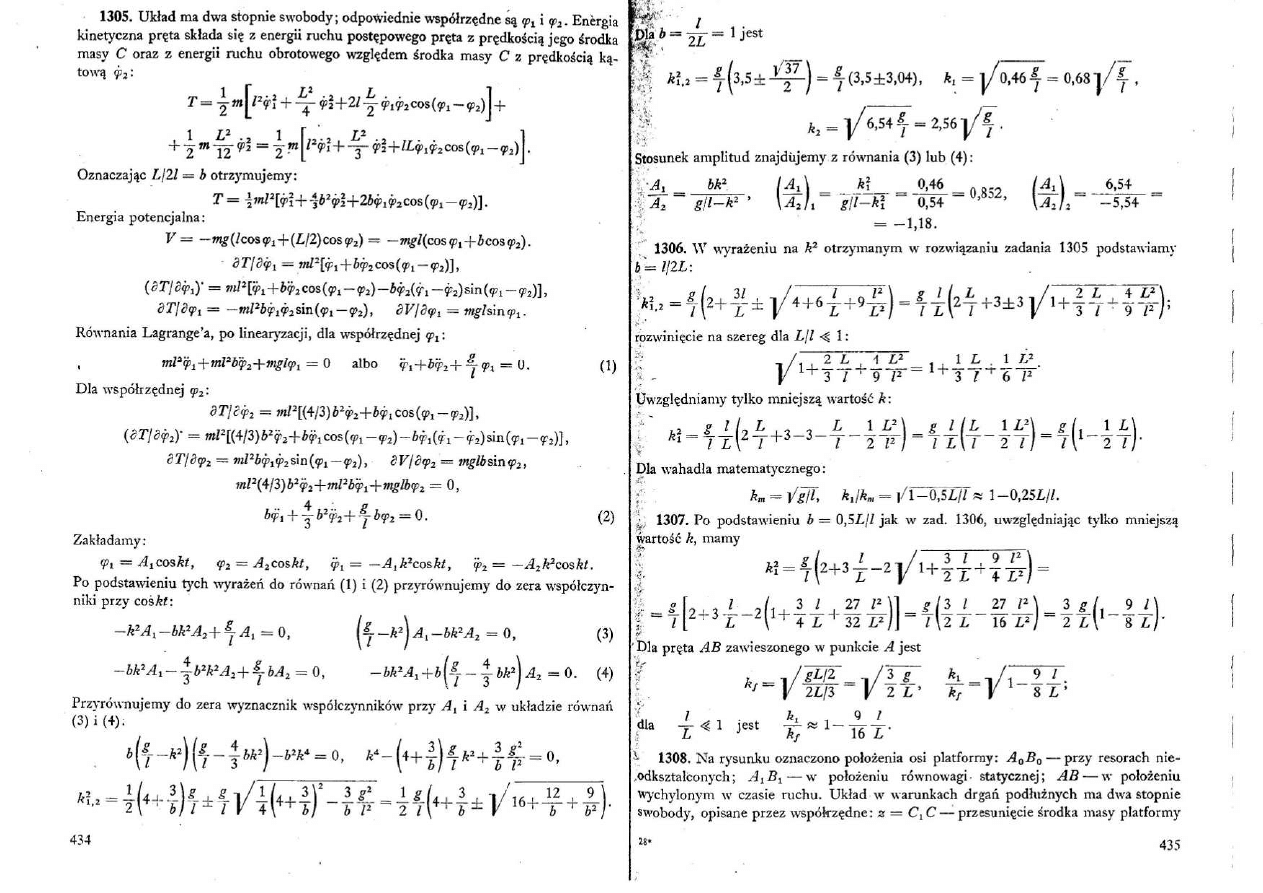 1305. Układ ma dwa stopnie swobody; odpowiednie współrzędne są φ₁ i φ₂. Energia
kinetyczna pręta składa się z energii ruchu postępowego pręta z prędkością jego środka
masy C oraz z energii ruchu obrotowego względem środka masy C z prędkością ką-
tową φ̇₂:
T = 1/2 m[l²φ̇₁² + L²/4 φ̇₂² + 2l L/2 φ̇₁φ̇₂cos(φ₁−φ₂)] +
+ 1/2 m L²/12 φ̇₂² = 1/2 m[l²φ̇₁² + L²/3 φ̇₂² + lLφ̇₁φ̇₂cos(φ₁−φ₂)].
Oznaczając L/2l = b otrzymujemy:
T = ½ml²[φ̇₁²+4/3b²φ̇₂²+2bφ̇₁φ̇₂cos(φ₁−φ₂)].
Energia potencjalna:
V = −mg(lcosφ₁+(L/2)cosφ₂) = −mgl(cosφ₁+bcosφ₂).
∂T/∂φ̇₁ = ml²[φ̇₁+bφ̇₂cos(φ₁−φ₂)],
(∂T/∂φ̇₁)˙ = ml²[φ̈₁+bφ̈₂cos(φ₁−φ₂)−bφ̇₂(φ̇₁−φ̇₂)sin(φ₁−φ₂)],
∂T/∂φ₁ = −ml²bφ̇₁φ̇₂sin(φ₁−φ₂), ∂V/∂φ₁ = mglsinφ₁.
Równania Lagrange'a, po linearyzacji, dla współrzędnej φ₁:
ml²φ̈₁+ml²bφ̈₂+mglφ₁ = 0 albo φ̈₁+bφ̈₂+ g/l φ₁ = 0. (1)
Dla współrzędnej φ₂:
∂T/∂φ̇₂ = ml²[(4/3)b²φ̇₂+bφ̇₁cos(φ₁−φ₂)],
(∂T/∂φ̇₂)˙ = ml²[(4/3)b²φ̈₂+bφ̈₁cos(φ₁−φ₂)−bφ̇₁(φ̇₁−φ̇₂)sin(φ₁−φ₂)],
∂T/∂φ₂ = ml²bφ̇₁φ̇₂sin(φ₁−φ₂), ∂V/∂φ₂ = mglbsinφ₂,
ml²(4/3)b²φ̈₂+ml²bφ̈₁+mglbφ₂ = 0,
bφ̈₁ + 4/3 b²φ̈₂ + g/l bφ₂ = 0. (2)
Zakładamy:
φ₁ = A₁coskt, φ₂ = A₂coskt, φ̈₁ = −A₁k²coskt, φ̈₂ = −A₂k²coskt.
Po podstawieniu tych wyrażeń do równań (1) i (2) przyrównujemy do zera współczyn-
niki przy coskt:
−k²A₁−bk²A₂+ g/l A₁ = 0, (g/l −k²)A₁−bk²A₂ = 0, (3)
−bk²A₁− 4/3 b²k²A₂+ g/l bA₂ = 0, −bk²A₁+b(g/l − 4/3 bk²)A₂ = 0. (4)
Przyrównujemy do zera wyznacznik współczynników przy A₁ i A₂ w układzie równań
(3) i (4):
b(g/l −k²)(g/l − 4/3 bk²)−b²k⁴ = 0, k⁴−(4+ 3/b) g/l k²+ 3/b g²/l² = 0,
k²₁,₂ = 1/2(4+ 3/b) g/l ± g/l √(1/4(4+ 3/b)² − 3/b g²/l²) = 1/2 g/l(4+ 3/b ± √(16+ 12/b + 9/b²)).
434
Dla b = l/2L = 1 jest
k²₁,₂ = g/l(3,5± √37/2) = g/l(3,5±3,04), k₁ = √(0,46 g/l) = 0,68√(g/l),
k₂ = √(6,54 g/l) = 2,56√(g/l).
Stosunek amplitud znajdujemy z równania (3) lub (4):
A₁/A₂ = bk²/(g/l−k²), (A₁/A₂)₁ = k₁²/(g/l−k₁²) = 0,46/0,54 = 0,852, (A₁/A₂)₂ = 6,54/−5,54 =
= −1,18.
1306. W wyrażeniu na k² otrzymanym w rozwiązaniu zadania 1305 podstawiamy
b = l/2L:
k²₁,₂ = g/l(2+ 3l/L ± √(4+6 l/L +9 l²/L²)) = g/l l/L(2 L/l +3±3√(1+ 2/3 L/l + 4/9 L²/l²));
rozwinięcie na szereg dla L/l ≪ 1:
√(1+ 2/3 L/l + 4/9 L²/l²) = 1+ 1/3 L/l + 1/6 L²/l².
Uwzględniamy tylko mniejszą wartość k:
k₁² = g/l l/L(2 L/l +3−3− L/l − 1/2 L²/l²) = g/l l/L(L/l − 1/2 L²/l²) = g/l(1− 1/2 L/l).
Dla wahadła matematycznego:
kₘ = √g/l, k₁/kₘ = √1−0,5L/l ≈ 1−0,25L/l.
1307. Po podstawieniu b = 0,5L/l jak w zad. 1306, uwzględniając tylko mniejszą
wartość k, mamy
k₁² = g/l(2+3 l/L −2√(1+ 3/2 l/L + 9/4 l²/L²)) =
= g/l[2+3 l/L −2(1+ 3/4 l/L + 27/32 l²/L²)] = g/l(3/2 l/L − 27/16 l²/L²) = 3/2 g/L(1− 9/8 l/L).
Dla pręta AB zawieszonego w punkcie A jest
k_f = √(gL/2 / 2L/3) = √(3/2 g/L), k₁/k_f = √(1− 9/8 l/L);
dla l/L ≪ 1 jest k₁/k_f ≈ 1− 9/16 l/L.
1308. Na rysunku oznaczono położenia osi platformy: A₀B₀ — przy resorach nie-
odkształconych; A₁B₁ — w położeniu równowagi statycznej; AB — w położeniu
wychylonym w czasie ruchu. Układ w warunkach drgań podłużnych ma dwa stopnie
swobody, opisane przez współrzędne: z = C₁C — przesunięcie środka masy platformy
28*
435